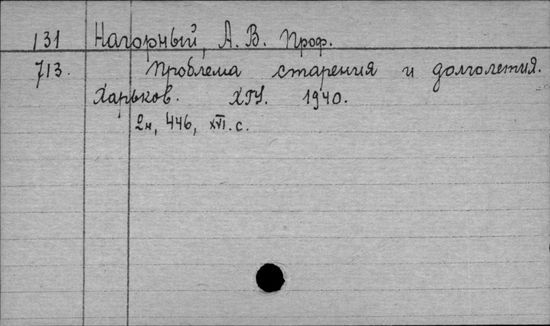 131 Нагорный, А. В. Проф.
713. Проблема старения и долголетия.
Харьков. ХГУ. 1940.
2н, 446, XVI. с.